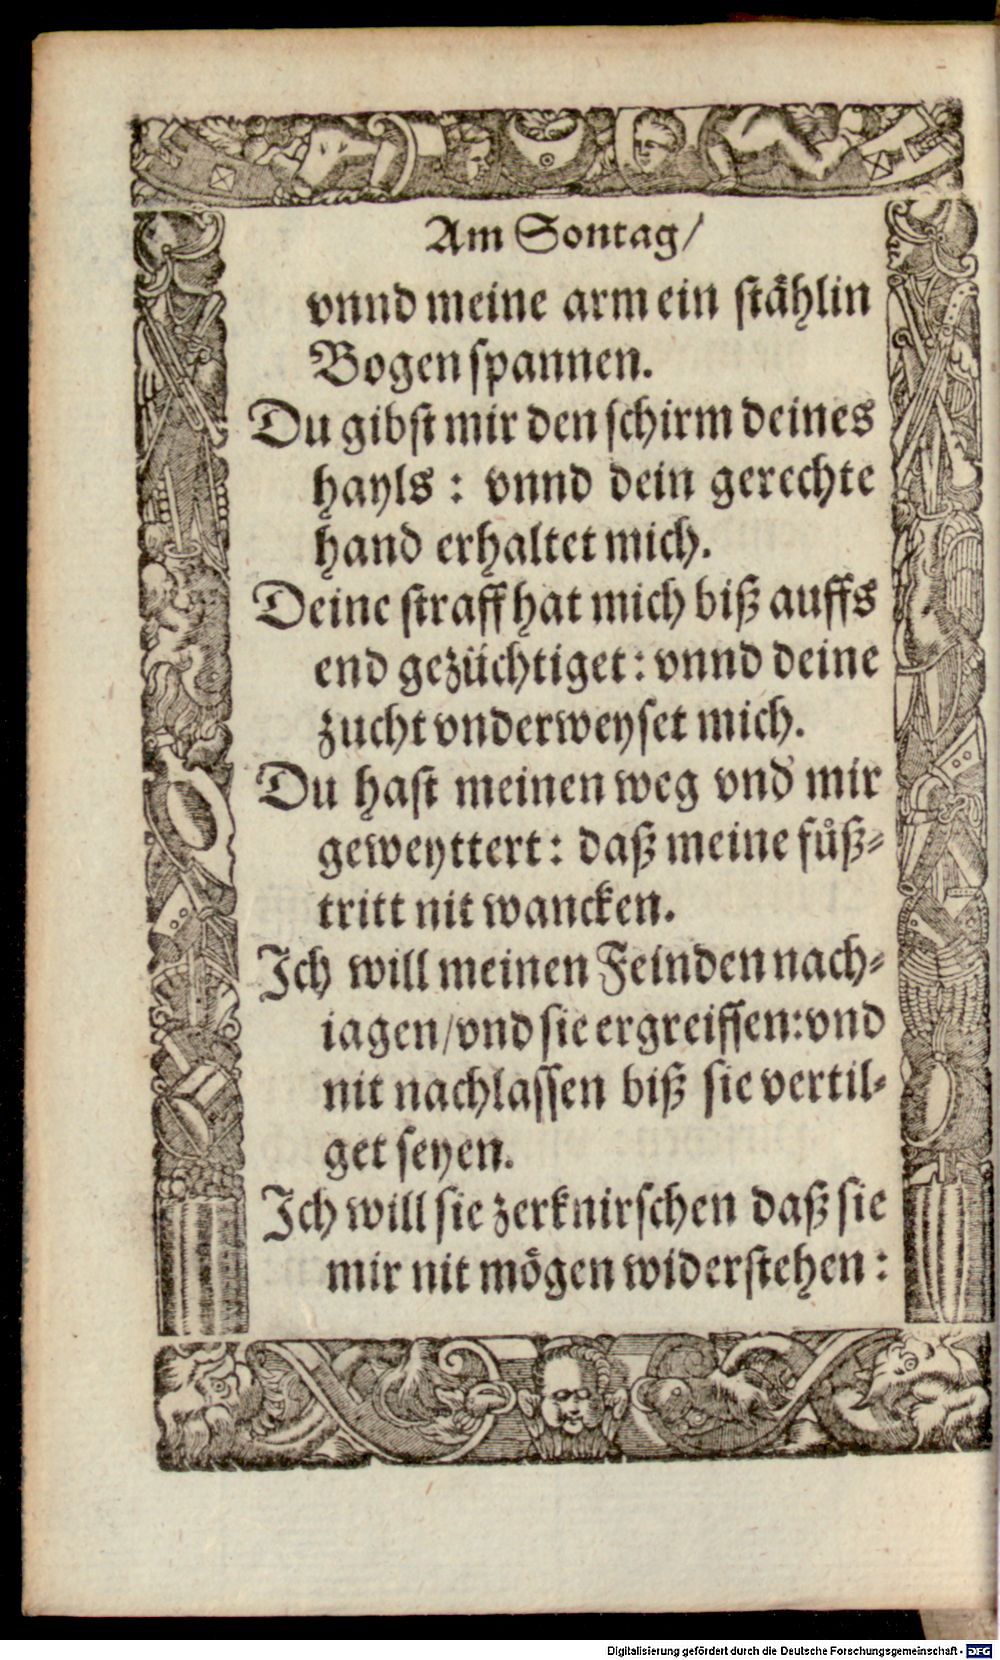 Am Sontag/
vnnd meine arm ein stählin
Bogen spannen.
Du gibst mir den schirm deines
hayls: vnnd dein gerechte
hand erhaltet mich.
Deine straff hat mich biß auffs
end gezüchtiget: vnnd deine
zucht vnderweyset mich.
Du hast meinen weg vnd mir
geweyttert: daß meine fůß-
tritt nit wancken.
Ich will meinen Feinden nach-
iagen/vnd sie ergreiffen: vnd
nit nachlassen biß sie vertil-
get seyen.
Ich will sie zerknirschen daß sie
mir nit mögen widerstehen:
Digitalisierung gefördert durch die Deutsche Forschungsgemeinschaft - DFG